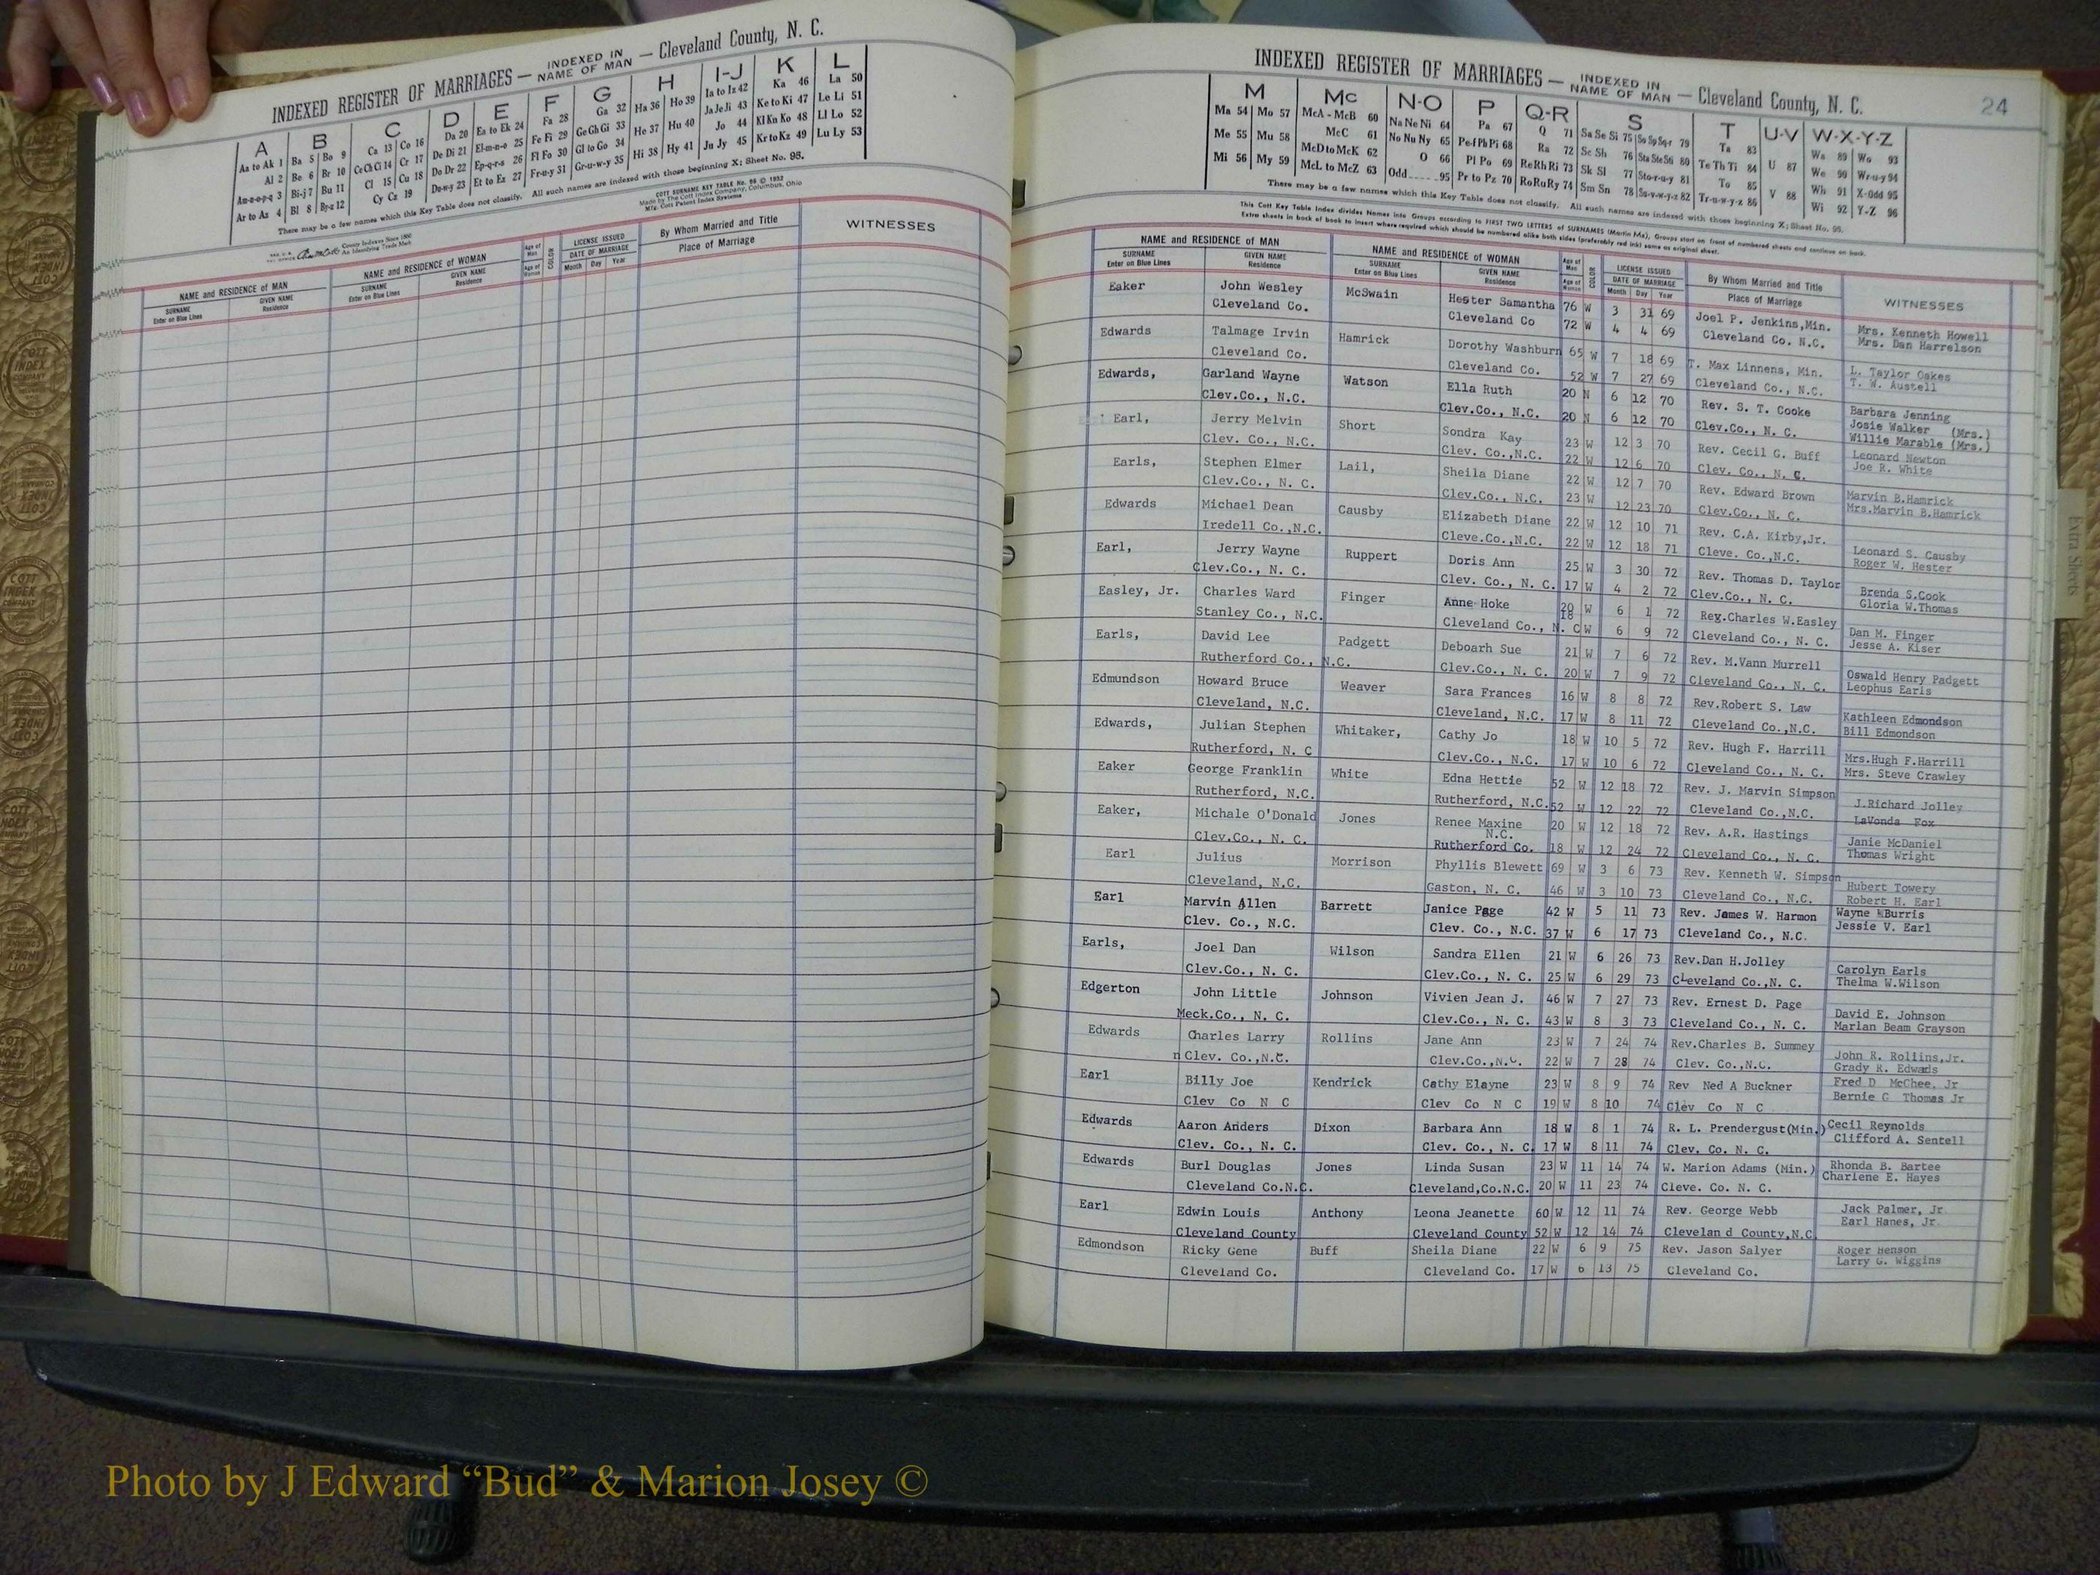 INDEXED REGISTER OF MARRIAGES — INDEXED IN NAME OF MAN — Cleveland County, N. C.
A B C D E F G H I-J K L
Aa to Ak 1 Ba 5 Bo 9 Ca 13 Co 16 Da 20 Ea to Ek 24 Fa 28 Ga 32 Ha 36 Ho 39 Ia to Iz 42 Ka 46 La 50
Al 2 Be 6 Br 10 Ce Ch Ci 14 Cr 17 De Di 21 El-m-n-o 25 Fe Fi 29 Ge Gh Gi 33 He 37 Hu 40 Ja Je Ji 43 Ke to Ki 47 Le Li 51
Am-n-o-p-q 3 Bi-j 7 Bu 11 Cl 15 Cu 18 Do Dr 22 Ep-q-r-s 26 Fl Fo 30 Gl to Go 34 Hi 38 Hy 41 Jo 44 Kl Kn Ko 48 Ll Lo 52
Ar to Az 4 Bl 8 By-z 12 Cy Cz 19 Du-w-y 23 Et to Ez 27 Fr-u-y 31 Gr-u-w-y 35 Ju Jy 45 Kr to Kz 49 Lu Ly 53
There may be a few names which this Key Table does not classify. All such names are indexed with those beginning X; Sheet No. 95.
COTT SURNAME KEY TABLE No. 96 © 1932
Made by The Cott Index Company, Columbus, Ohio
NAME and RESIDENCE OF MAN NAME and RESIDENCE OF WOMAN Age of Man COLOR LICENSE ISSUED By Whom Married and Title WITNESSES
SURNAME Enter on Blue Lines GIVEN NAME Residence SURNAME Enter on Blue Lines GIVEN NAME Residence Age of Woman DATE OF MARRIAGE Month Day Year Place of Marriage
INDEXED REGISTER OF MARRIAGES — INDEXED IN NAME OF MAN — Cleveland County, N. C.
24
M Mc N-O P Q-R S T U-V W-X-Y-Z
Ma 54 Mo 57 McA - McB 60 Na Ne Ni 64 Pa 67 Q 71 Sa Se Si 75 So Sp Sq-r 79 Ta 83 Wa 89 Wo 93
Me 55 Mu 58 McC 61 No Nu Ny 65 Pe-f Ph Pi 68 Ra 72 Sc Sh 76 Sta Ste Sti 80 Te Th Ti 84 U 87 We 90 Wr-u-y 94
Mi 56 My 59 McD to McK 62 O 66 Pl Po 69 Re Rh Ri 73 Sk Sl 77 Sto-r-u-y 81 To 85 Wh 91 X-Odd 95
McL to McZ 63 Odd 95 Pr to Pz 70 Ro Ru Ry 74 Sm Sn 78 Su-v-w-y-z 82 Tr-u-w-y-z 86 V 88 Wi 92 Y-Z 96
There may be a few names which this Key Table does not classify. All such names are indexed with those beginning X; Sheet No. 95.
This Cott Key Table Index divides Names into Groups according to FIRST TWO LETTERS of SURNAMES (Martin Ma), Groups start on front of numbered sheets and continue on back.
Extra sheets in back of book to insert where required which should be numbered alike both sides (preferably red ink) same as original sheet.
NAME and RESIDENCE OF MAN NAME and RESIDENCE OF WOMAN Age of Man COLOR LICENSE ISSUED By Whom Married and Title WITNESSES
SURNAME Enter on Blue Lines GIVEN NAME Residence SURNAME Enter on Blue Lines GIVEN NAME Residence Age of Woman DATE OF MARRIAGE Month Day Year Place of Marriage
Eaker John Wesley McSwain Hester Samantha 76 W 3 31 69 Joel P. Jenkins,Min. Mrs. Kenneth Howell
Cleveland Co. Cleveland Co 72 W 4 4 69 Cleveland Co. N.C. Mrs. Dan Harrelson
Edwards Talmage Irvin Hamrick Dorothy Washburn 65 W 7 18 69 T. Max Linnens, Min. L. Taylor Oakes
Cleveland Co. Cleveland Co. 52 W 7 27 69 Cleveland Co., N.C. T. W. Austell
Edwards, Garland Wayne Watson Ella Ruth 20 N 6 12 70 Rev. S. T. Cooke Barbara Jenning
Clev.Co., N.C. Clev.Co., N.C. 20 N 6 12 70 Clev.Co., N. C. Josie Walker (Mrs.)
Willie Marable (Mrs.)
Earl, Jerry Melvin Short Sondra Kay 23 W 12 3 70 Rev. Cecil G. Buff Leonard Newton
Clev. Co., N.C. Clev. Co.,N.C. 22 W 12 6 70 Clev. Co., N. C. Joe R. White
Earls, Stephen Elmer Lail, Sheila Diane 22 W 12 7 70 Rev. Edward Brown Marvin B.Hamrick
Clev.Co., N. C. Clev.Co., N.C. 23 W 12 23 70 Clev.Co., N. C. Mrs.Marvin B.Hamrick
Edwards Michael Dean Causby Elizabeth Diane 22 W 12 10 71 Rev. C.A. Kirby,Jr. Leonard S. Causby
Iredell Co.,N.C. Cleve.Co.,N.C. 22 W 12 18 71 Cleve. Co.,N.C. Roger W. Hester
Earl, Jerry Wayne Ruppert Doris Ann 25 W 3 30 72 Rev. Thomas D. Taylor Brenda S.Cook
Clev.Co., N. C. Clev. Co., N. C. 17 W 4 2 72 Clev.Co., N. C. Gloria W.Thomas
Easley, Jr. Charles Ward Finger Anne Hoke 20 W 6 1 72 Reg.Charles W.Easley Dan M. Finger
Stanley Co., N.C. Cleveland Co., N. C 18 W 6 9 72 Cleveland Co., N. C. Jesse A. Kiser
Earls, David Lee Padgett Deboarh Sue 21 W 7 6 72 Rev. M.Vann Murrell Oswald Henry Padgett
Rutherford Co., N.C. Clev.Co., N. C. 20 W 7 9 72 Cleveland Co., N. C. Leophus Earls
Edmundson Howard Bruce Weaver Sara Frances 16 W 8 8 72 Rev.Robert S. Law Kathleen Edmondson
Cleveland, N.C. Cleveland, N.C. 17 W 8 11 72 Cleveland Co.,N.C. Bill Edmondson
Edwards, Julian Stephen Whitaker, Cathy Jo 18 W 10 5 72 Rev. Hugh F. Harrill Mrs.Hugh F.Harrill
Rutherford, N. C Clev.Co., N.C. 17 W 10 6 72 Cleveland Co., N. C. Mrs. Steve Crawley
Eaker George Franklin White Edna Hettie 52 W 12 18 72 Rev. J. Marvin Simpson J.Richard Jolley
Rutherford, N.C. Rutherford, N.C. 52 W 12 22 72 Cleveland Co.,N.C. LaVonda Fox
Eaker, Michale O'Donald Jones Renee Maxine 20 W 12 18 72 Rev. A.R. Hastings Janie McDaniel
Clev.Co., N. C. N.C. Rutherford Co. 18 W 12 24 72 Cleveland Co., N. C. Thomas Wright
Earl Julius Morrison Phyllis Blewett 69 W 3 6 73 Rev. Kenneth W. Simpson Hubert Towery
Cleveland, N.C. Gaston, N. C. 46 W 3 10 73 Cleveland Co., N.C. Robert H. Earl
Earl Marvin Allen Barrett Janice Page 42 W 5 11 73 Rev. James W. Harmon Wayne Burris
Clev. Co., N.C. Clev. Co., N.C. 37 W 6 17 73 Cleveland Co., N.C. Jessie V. Earl
Earls, Joel Dan Wilson Sandra Ellen 21 W 6 26 73 Rev.Dan H.Jolley Carolyn Earls
Clev.Co., N. C. Clev.Co., N. C. 25 W 6 29 73 Cleveland Co.,N. C. Thelma W.Wilson
Edgerton John Little Johnson Vivien Jean J. 46 W 7 27 73 Rev. Ernest D. Page David E. Johnson
Meck.Co., N. C. Clev.Co., N. C. 43 W 8 3 73 Cleveland Co., N. C. Marlan Beam Grayson
Edwards Charles Larry Rollins Jane Ann 23 W 7 24 74 Rev.Charles B. Summey John R. Rollins,Jr.
n Clev. Co.,N.C. Clev.Co.,N.C. 22 W 7 28 74 Clev. Co.,N.C. Grady R. Edwads
Earl Billy Joe Kendrick Cathy Elayne 23 W 8 9 74 Rev Ned A Buckner Fred D McGhee, Jr
Clev Co N C Clev Co N C 19 W 8 10 74 Clev Co N C Bernie G Thomas Jr
Edwards Aaron Anders Dixon Barbara Ann 18 W 8 1 74 R. L. Prendergust(Min.) Cecil Reynolds
Clev. Co., N. C. Clev. Co., N. C. 17 W 8 11 74 Clev. Co. N. C. Clifford A. Sentell
Edwards Burl Douglas Jones Linda Susan 23 W 11 14 74 W. Marion Adams (Min.) Rhonda B. Bartee
Cleveland Co.N.C. Cleveland,Co.N.C. 20 W 11 23 74 Cleve. Co. N. C. Charlene E. Hayes
Earl Edwin Louis Anthony Leona Jeanette 60 W 12 11 74 Rev. George Webb Jack Palmer, Jr
Cleveland County Cleveland County 52 W 12 14 74 Clevelan d County,N.C. Earl Hanes, Jr.
Edmondson Ricky Gene Buff Sheila Diane 22 W 6 9 75 Rev. Jason Salyer Roger Henson
Cleveland Co. Cleveland Co. 17 W 6 13 75 Cleveland Co. Larry G. Wiggins
Extra Sheets
Photo by J Edward “Bud” & Marion Josey ©